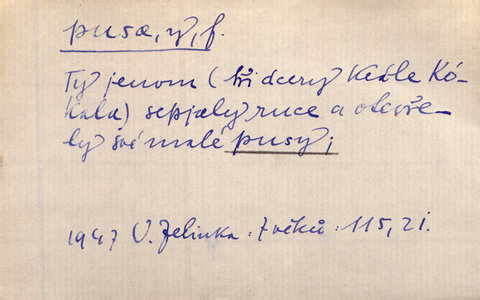 pusa, y, f.
Ty jenom (tři dcery krále Ko-
kala) sepjaly ruce a otevře-
ly své malé pusy;
1947 V. Jelinka: Z věků. 115, 21.